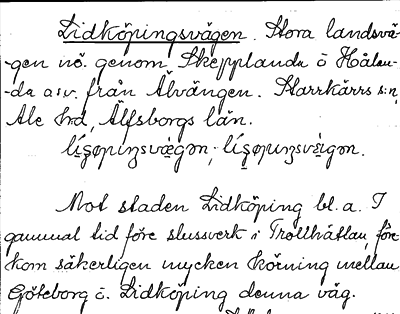 Lidköpingsvägen. Stora landsvä-
-gen nö. genom Skepplanda o Hålan-
-da asv. från Älvängen. Starrkärrs s:n,
Ale hd, Älfsborgs län.
Mot staden Lidköping bl. a. I
gammal tid före slussverk i Trollhättan, före
kom säkerligen mycken körning mellan
Göteborg o. Lidköping denna väg.